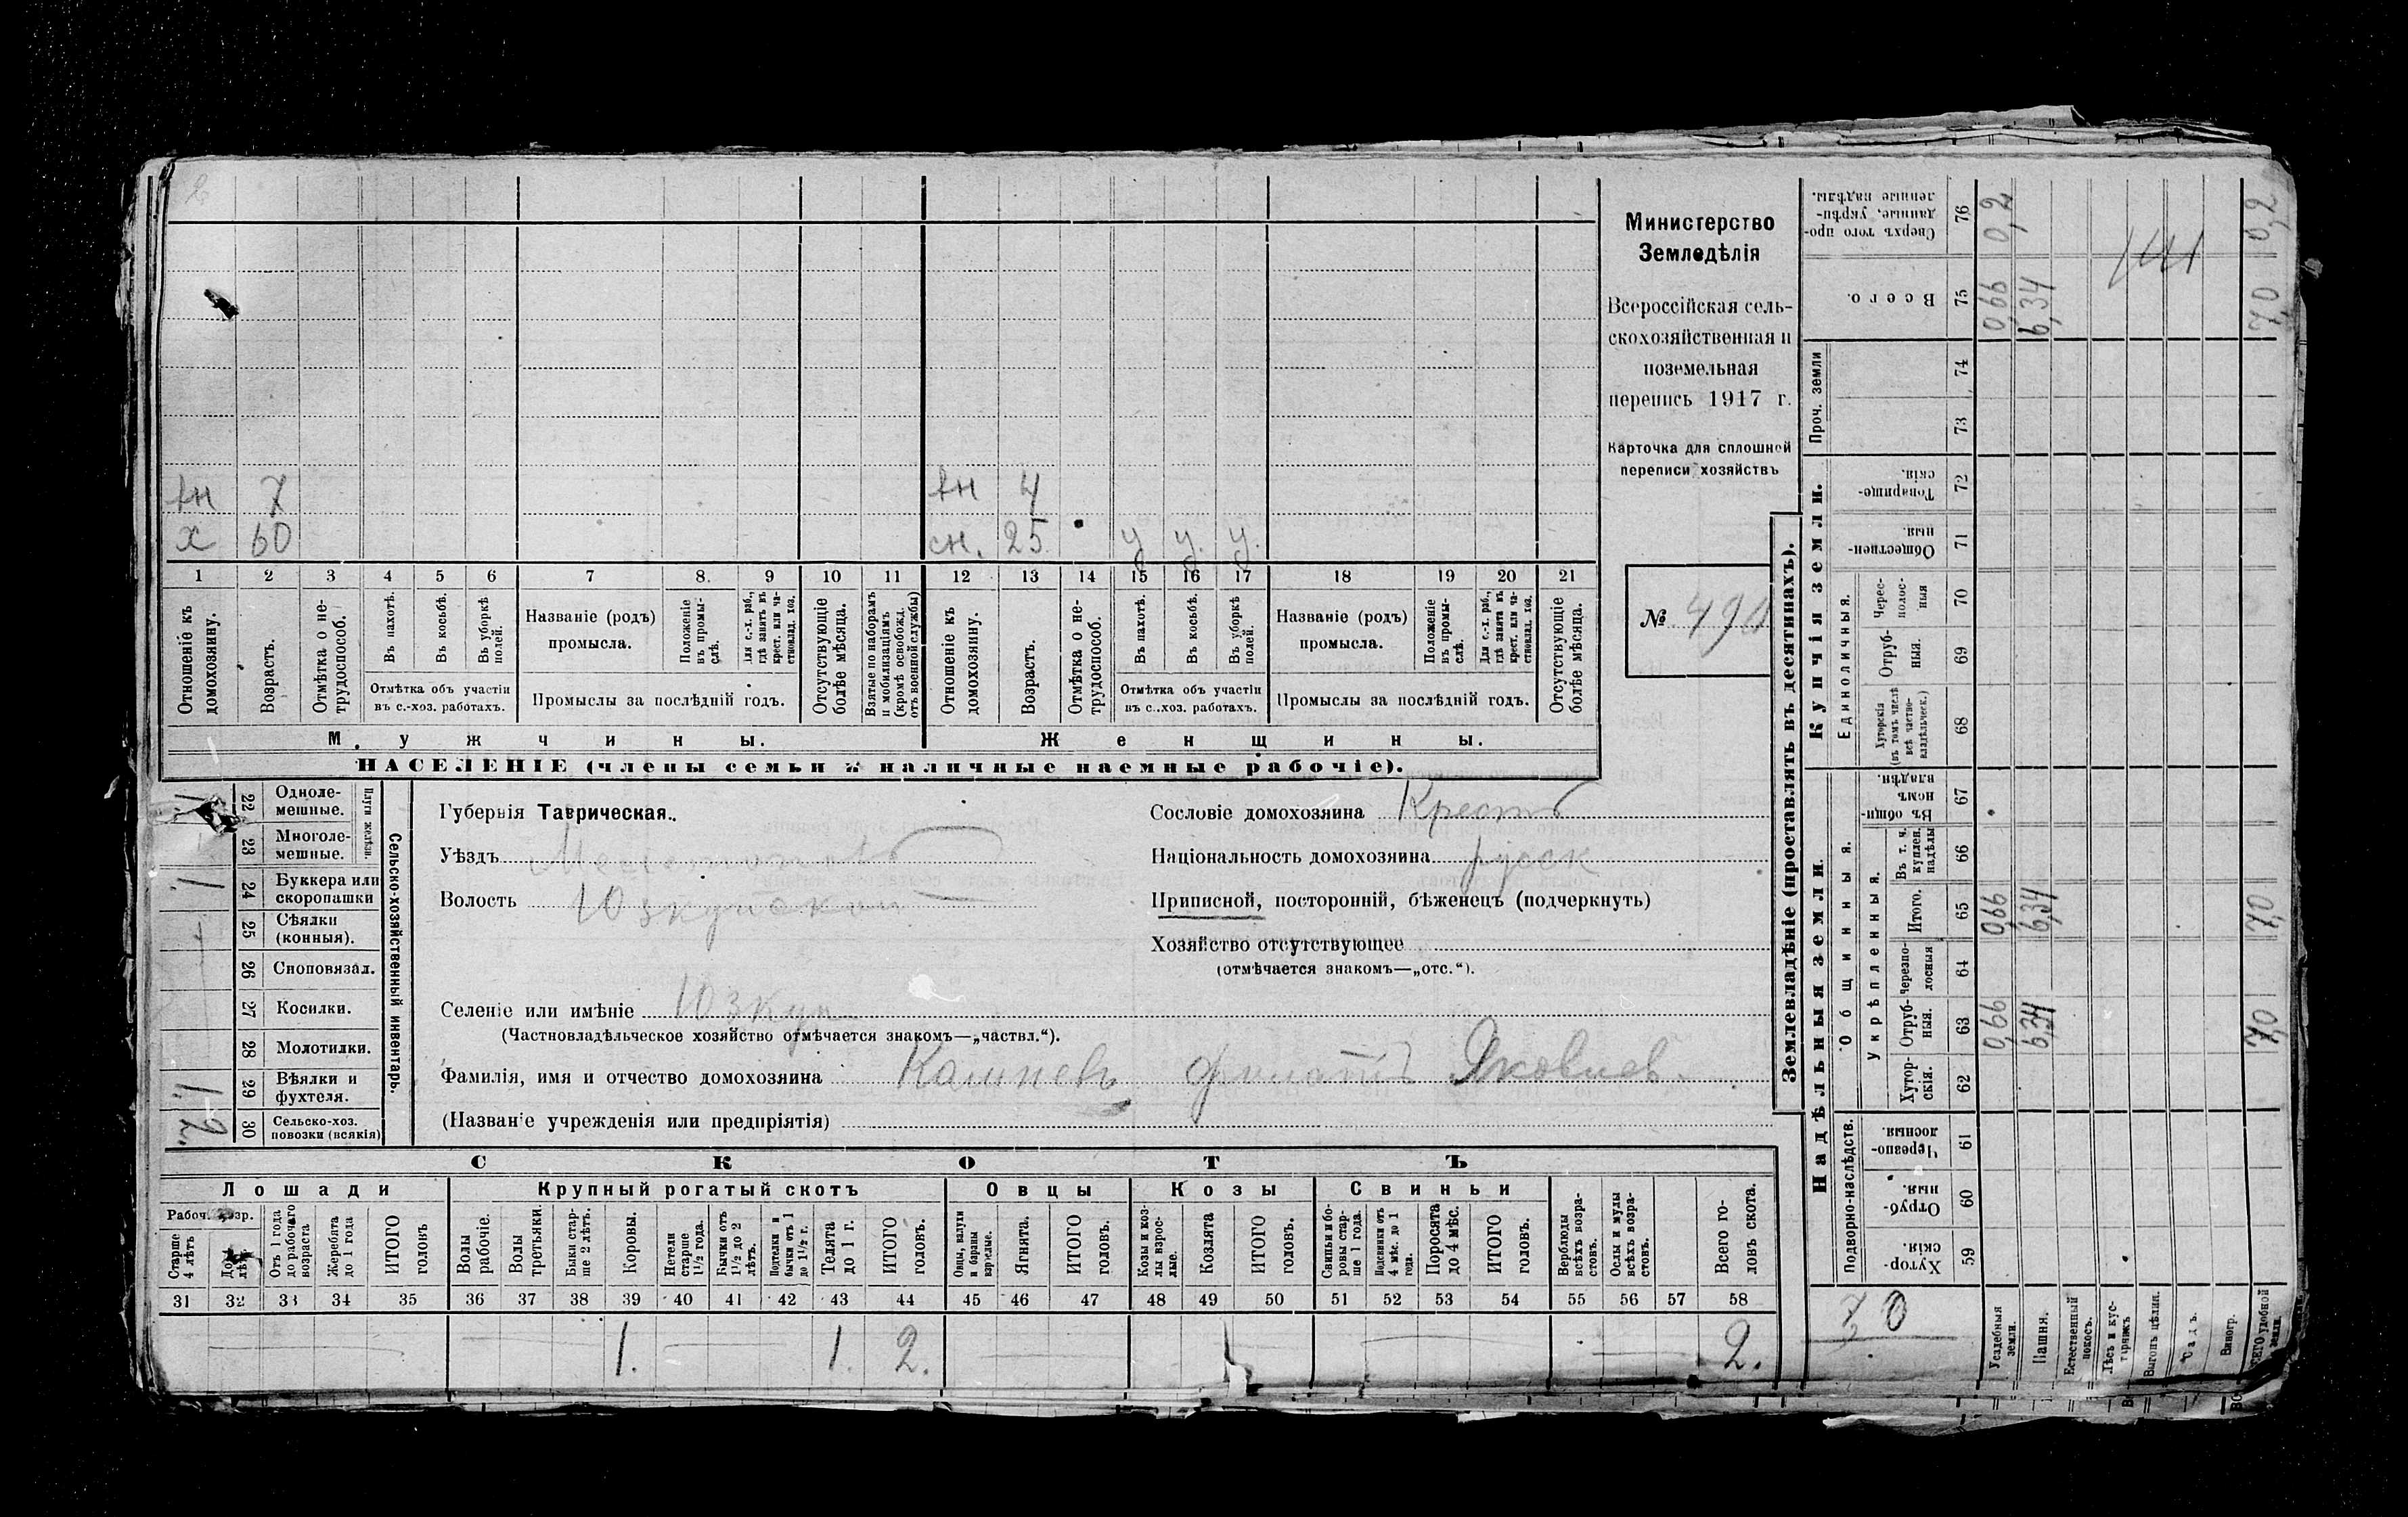 Министерство
Земледѣлія
Всероссійская сель-
скохозяйственная и
поземельная
перепись 1917 г.
Карточка для сплошной
переписи хозяйствъ
№
вн 7 вн 4
х 60 сн. 25 у у. у.
1 2 3 4 5 6 7 8 9 10 11 12 13 14 15 16 17 18 19 20 21
Отношеніе къ домохозяину.
Возрастъ.
Отмѣтка о не-трудоспособ.
Въ пахотѣ.
Въ косьбѣ.
Въ уборкѣ полей.
Отмѣтка объ участіи въ с.-хоз. работахъ.
Названіе (родъ) промысла.
Положеніе въ промы-слѣ.
Для с.-х. раб., гдѣ занятъ въ крест. или ча-стновлад. хоз.
Промыслы за послѣдній годъ.
Отсутствующіе болѣе мѣсяца.
Взятые по наборамъ и мобилизаціямъ (кромѣ освобожд. отъ военной службы)
Отношеніе къ домохозяину.
Возрастъ.
Отмѣтка о не-трудоспособ.
Въ пахотѣ.
Въ косьбѣ.
Въ уборкѣ полей.
Отмѣтка объ участіи въ с.-хоз. работахъ.
Названіе (родъ) промысла.
Положеніе въ промы-слѣ.
Для с.-х. раб., гдѣ занята въ крест. или ча-стновлад. хоз.
Промыслы за послѣдній годъ.
Отсутствующіе болѣе мѣсяца.
Мужчины. Женщины.
НАСЕЛЕНІЕ (члены семьи и наличные наемные рабочіе).
Сельско-хозяйственный инвентарь.
Плуги желѣзн.
22 Одноле-мешные. 1
23 Многоле-мешные.
24 Буккера или скоропашки 1
25 Сѣялки (конныя).
26 Сноповязал.
27 Косилки.
28 Молотилки.
29 Вѣялки и фухтеля. 1
30 Сельско-хоз. повозки (всякія)
Губернія Таврическая.
Уѣздъ Мелитопольск
Волость Юзкуйская
Селеніе или имѣніе Юзкуи
(Частновладѣльческое хозяйство отмѣчается знакомъ—„частвл.“).
Фамилія, имя и отчество домохозяина Филатъ Яковлев.
(Названіе учрежденія или предпріятія)
Сословіе домохозяина Крестъ
Національность домохозяина русск
Приписной, посторонній, бѣженецъ (подчеркнуть)
Хозяйство отсутствующее
(отмѣчается знакомъ—„отс.“).
СКОТЪ
Лошади Крупный рогатый скотъ Овцы Козы Свиньи
Рабоч. возр.
Старше 4 лѣтъ
До 4 лѣтъ
Отъ 1 года до рабочаго возраста
Жеребята до 1 года
ИТОГО головъ
Волы рабочіе.
Волы третьяки.
Быки стар-ше 2 лѣтъ.
Коровы.
Нетели старше 1½ года.
Бычки отъ 1½ до 2 лѣтъ.
Подтелки и бычки отъ 1 до 1½ г.
Телята до 1 г.
ИТОГО головъ.
Овцы, валухи и бараны взрослые.
Ягнята.
ИТОГО головъ.
Козы и коз-лы взрос-лые.
Козлята
ИТОГО головъ.
Свиньи и бо-ровы стар-ше 1 года.
Подсвинки отъ 4 мѣс. до 1 года.
Поросята до 4 мѣс.
ИТОГО головъ.
Верблюды всѣхъ возра-стовъ.
Ослы и мулы всѣхъ возра-стовъ.
Всего го-ловъ скота.
31 32 33 34 35 36 37 38 39 40 41 42 43 44 45 46 47 48 49 50 51 52 53 54 55 56 57 58
1. 1. 2. 2.
Землевладѣніе (проставлять въ десятинахъ).
Надѣльныя земли. Купчія земли. Проч. земли
Подворно-наслѣдств.
Общинныя.
Укрѣпленныя.
Единоличныя.
59 Хутор-скія.
60 Отруб-ныя.
61 Черезпо-лосныя.
62 Хутор-скія.
63 Отруб-ныя. 0,66 6,34 7,0
64 Черезпо-лосныя
65 Итого. 0,66 6,34 7,0
66 Въ т. ч. куплен. надѣлы
67 Въ общи-номъ владѣн.
68 Хуторскія (въ томъ числѣ всѣ частно-владѣльческ.)
69 Отруб-ныя.
70 Черес-полос-ныя
71 Обществен-ныя.
72 Товарище-скія.
73
74
75 Всего. 0,66 6,34 7,0
76 Сверхъ того про-данные, укрѣп-ленные надѣлы. 0,2 0,2
Усадебныя земли.
Пашня.
Естественный покосъ.
Лѣсъ и кус-тарникъ
Выгонъ цѣлин.
Садъ.
Виногр.
ВСЕГО удобной земли.